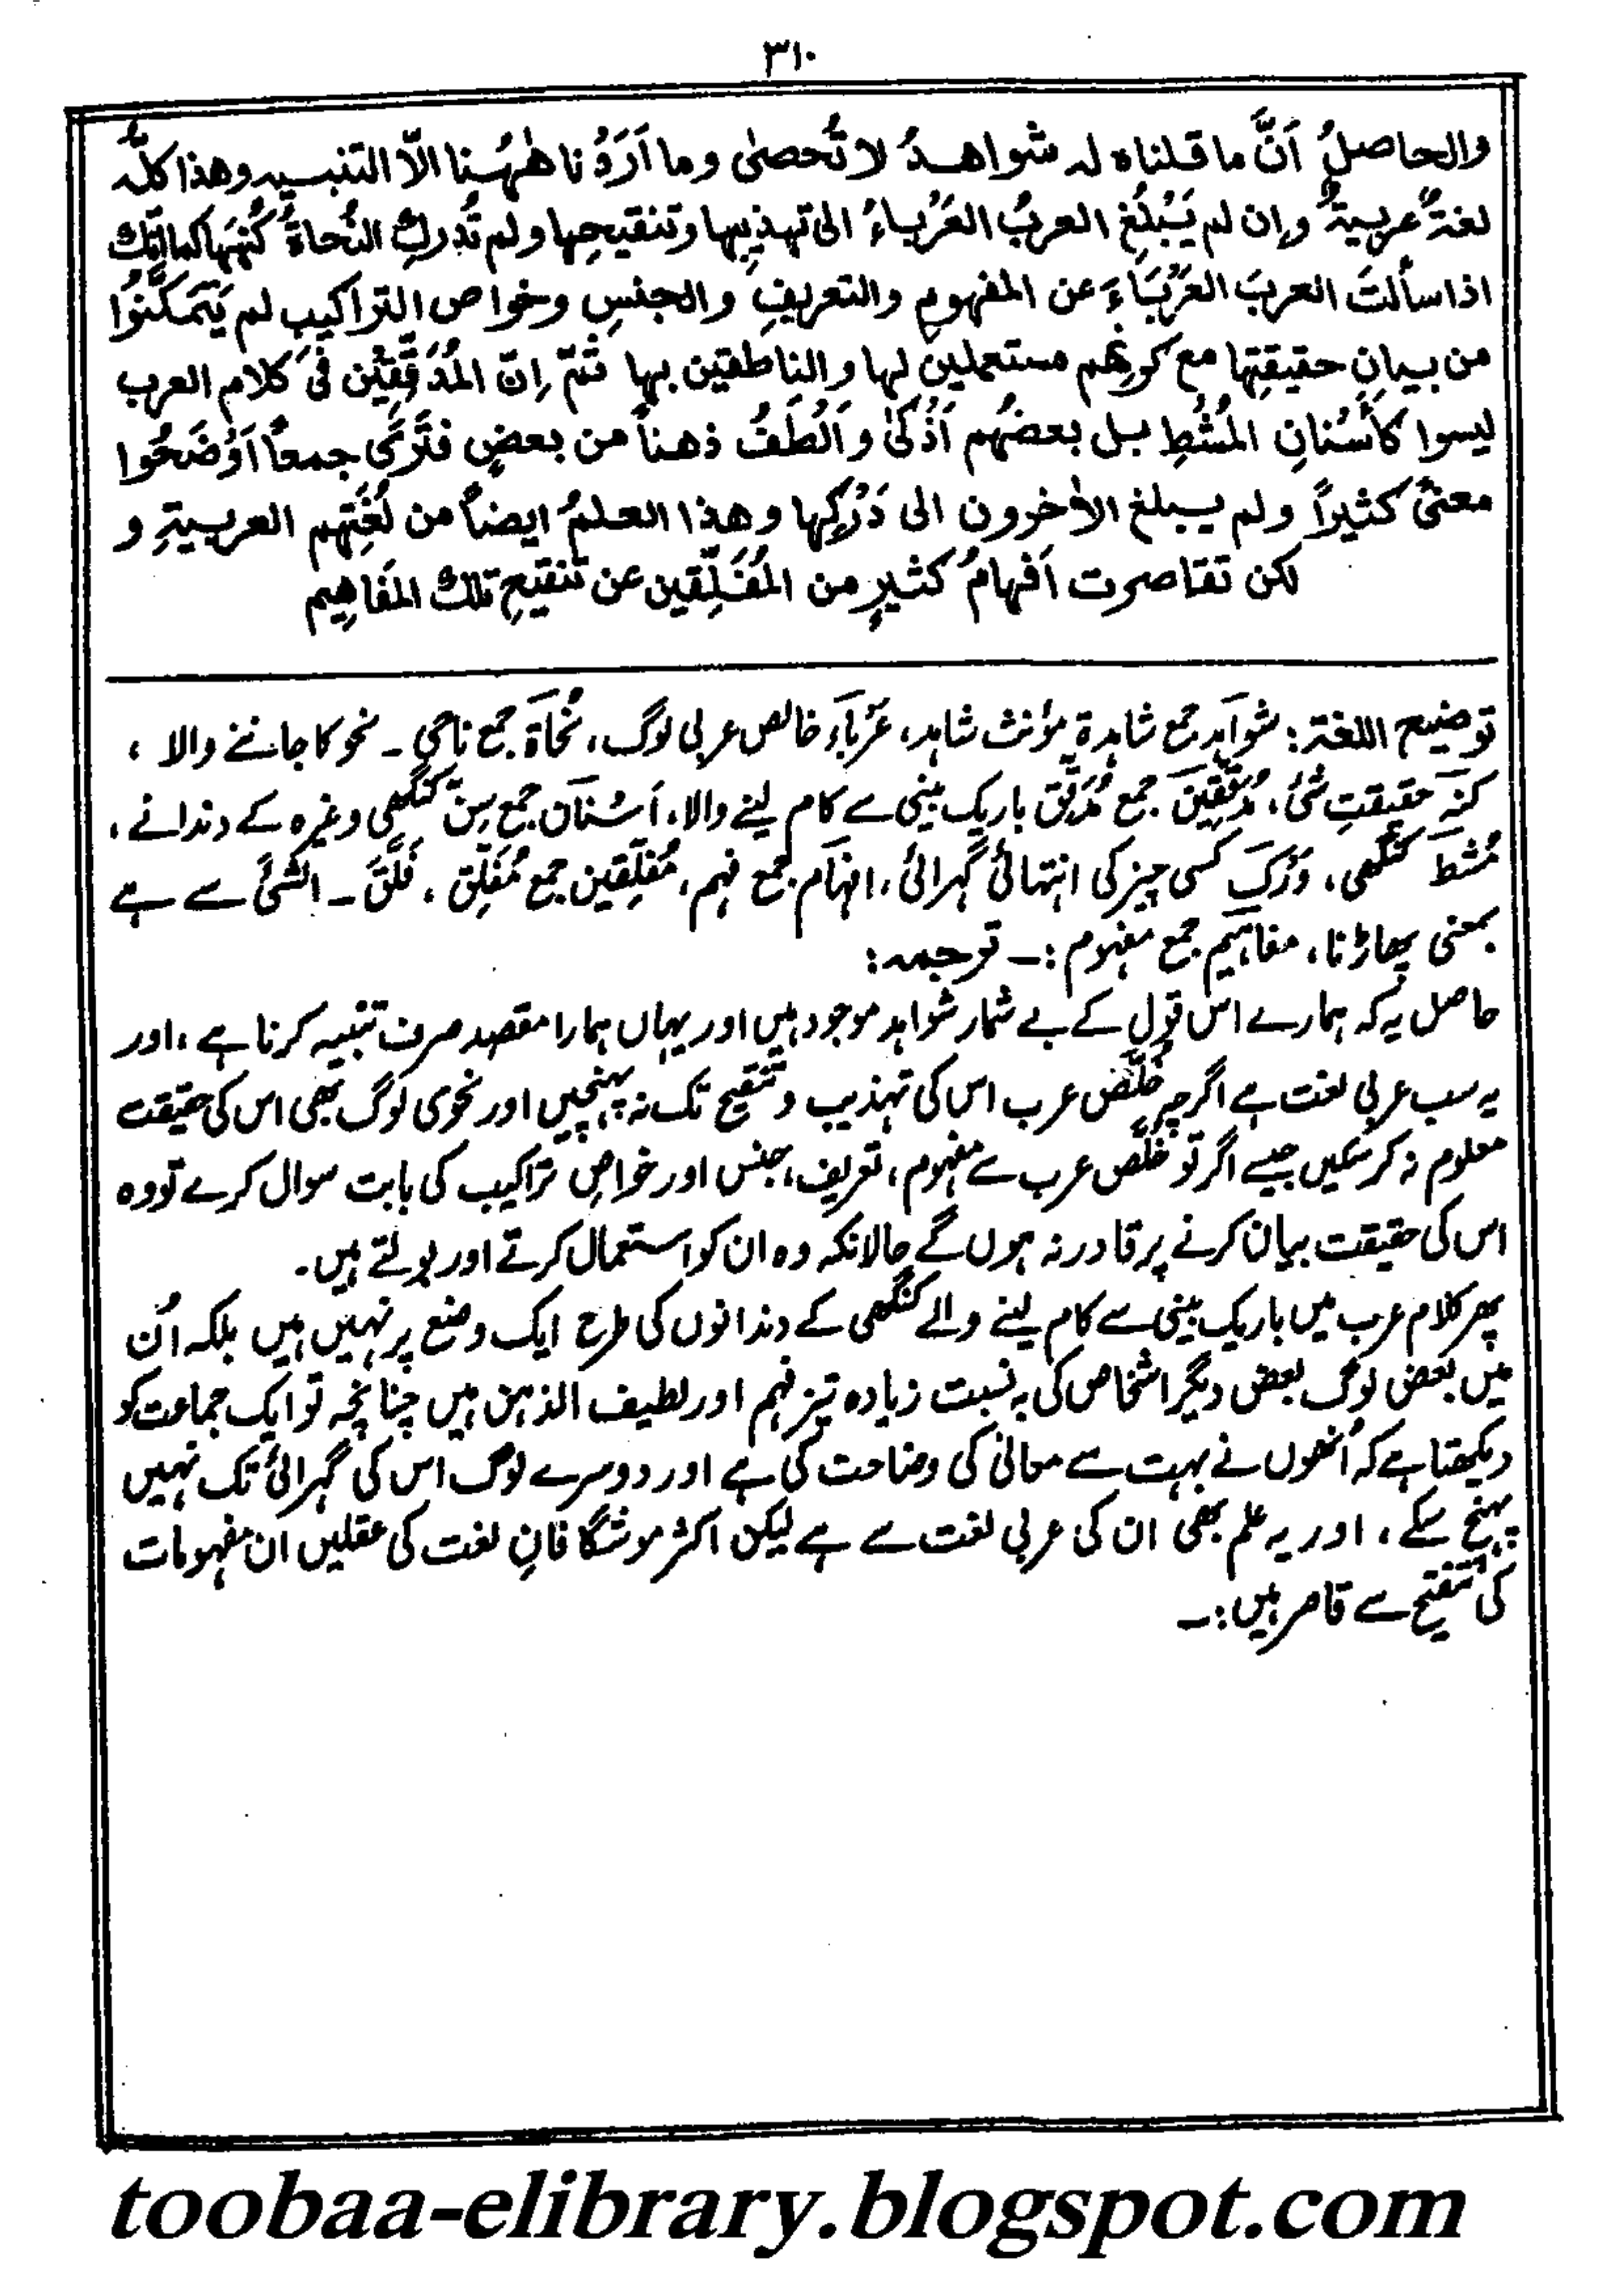 ۳۱۰
والحاصلُ اَنَّ ما قلناه له شواهدُ لا تُحصىٰ وما اَرَدْنا هٰهُنا الّا التنبيه وهذا كلُّه
لغةٌ عربيةٌ وإن لم يَبْلُغِ العربُ العَرْباءُ الى تهذيبِها وتنقيحِها ولم تُدرِكِ النُحاةُ كُنْهَها كما انّك
اذا سألتَ العربَ العَرْبَاءَ عن المفهومِ والتعريفِ والجنسِ وخواص التراكيب لم يَتَمَكَّنُوْا
من بيانِ حقيقتِها مع كونِهم مستعملين لها والناطقين بها ثمّ اِنّ المُدَقِّقِيْن فى كلام العرب
ليسوا كأسْنانِ المُشْطِ بل بعضُهم اَذْكىٰ واَلْطَفُ ذهناً من بعضٍ فتَرٰى جمعاً اَوْضَحُوا
معنىً كثيراً ولم يبلغ الاٰخرون الى دَرْكِها وهذا العلمُ ايضاً من لُغَتِهم العربيةِ و
لكن تقاصرت اَفهامُ كثيرٍ من المُفَلِّقين عن تنقيحِ تلك المَفاهِيم
توضیح اللغۃ: شواہد جمع شاہدۃ مؤنث شاہد، عَرْباء خالص عربی لوگ، نُحاۃ جمع ناحی ۔ نحو کا جاننے والا،
کنہ حقیقتِ شئ، مُدَقِّقِیْن جمع مُدَقِّق باریک بینی سے کام لینے والا، اَسْنَان جمع سِنّ کنگھی وغیرہ کے دندانے،
مُشط کنگھی، دَرْک کسی چیز کی انتہائی گہرائی، افہام جمع فہم، مُفَلِّقین جمع مُفَلِّق، فَلَّقَ ۔ الشئ سے ہے
بمعنی پھاڑنا، مفاہیم جمع مفہوم :۔ ترجمہ:
حاصل یہ کہ ہمارے اس قول کے بے شمار شواہد موجود ہیں اور یہاں ہمارا مقصد صرف تنبیہ کرنا ہے، اور
یہ سب عربی لغت ہے اگرچہ خُلّص عرب اس کی تہذیب و تنقیح تک نہ پہنچیں اور نحوی لوگ بھی اس کی حقیقت
معلوم نہ کر سکیں جیسے اگر تو خُلّص عرب سے مفہوم، تعریف، جنس اور خواصِ تراکیب کی بابت سوال کرے تو وہ
اس کی حقیقت بیان کرنے پر قادر نہ ہوں گے حالانکہ وہ ان کو استعمال کرتے اور بولتے ہیں۔
پھر کلام عرب میں باریک بینی سے کام لینے والے کنگھی کے دندانوں کی طرح ایک وضع پر نہیں ہیں بلکہ اُن
میں بعض لوگ بعض دیگر اشخاص کی بہ نسبت زیادہ تیز فہم اور لطیف الذہن ہیں چنانچہ تو ایک جماعت کو
دیکھتا ہے کہ اُنھوں نے بہت سے معانی کی وضاحت کی ہے اور دوسرے لوگ اس کی گہرائی تک نہیں
پہنچ سکے، اور یہ علم بھی ان کی عربی لغت سے ہے لیکن اکثر موشگافانِ لغت کی عقلیں ان مفہومات
کی تنقیح سے قاصر ہیں:۔
toobaa-elibrary.blogspot.com